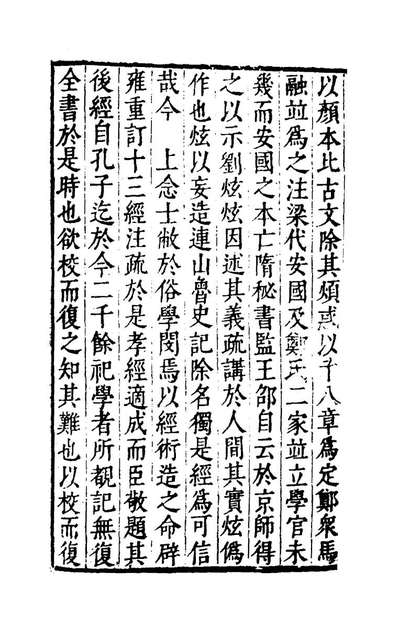 以顏本比古文除其煩惑以十八章爲定鄭衆馬
融並爲之注梁代安國及鄭氏二家並立學官未
幾而安國之本亡隋秘書監王邵自云於京師得
之以示劉炫炫因述其義疏講於人間其實炫僞
作也炫以妄造連山魯史記除名獨是經爲可信
哉今　上念士敝於俗學閔焉以經術造之命辟
雍重訂十三經注疏於是孝經適成而臣敬題其
後經自孔子迄於今二千餘祀學者所覩記無復
全書於是時也欲校而復之知其難也以校而復